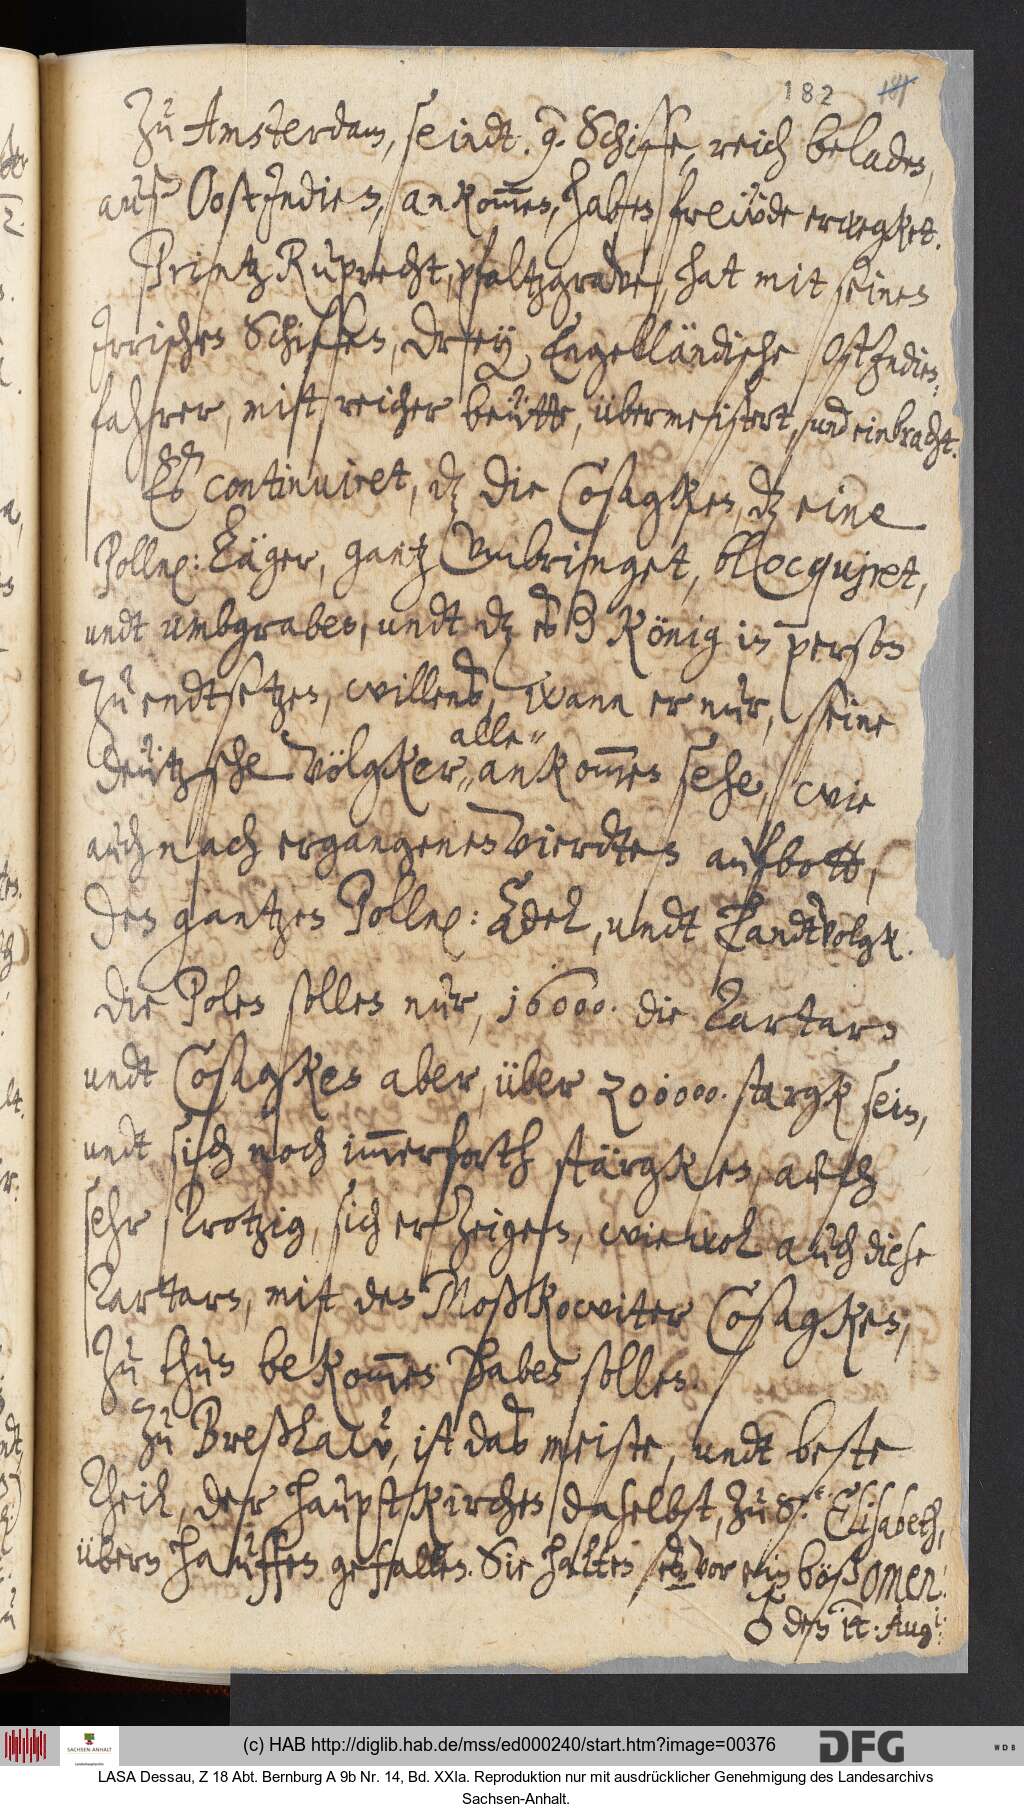 182 181
Zu Amsterdam, seindt. 9. Schiffe, reich beladen,
auß OostIndien, ankom̅en, haben freẅde erwegket.
Printz Ruprecht, pfaltzgrave, hat mit seinen
Irrischen Schiffen, drey Engelländische OstIndien¬
fahrer, mitt reicher beütte, übermeistert, und einbracht.
Es continuiret, dz die Cosagken, dz eine
Polln: Läger, gantz Umbringet, blocquiret,
undt umbgraben, undt dz es der König in person
zu endtsetzen, willens, wann er nur, seine
alle
deützsche Völgker, ankom̅en sehe, wie
auch nach ergangenen vierdten aufbott,
den gantzen Polln: Adel, undt Landtvolgk.
Die Polen sollen nur, 16000. die Tartarn
undt Cosagken aber, über 200000. stargk sein,
undt sich noch im̅erforth stärgken, auch
sehr Trotzig, sich erzeigen, wiewol auch diese
Tarttarn, mitt den Moßkowiter Cosagken,
zu thun bekom̅en haben sollen.
Zu Breßlaẅ, ist das meiste, undt beste
Theil, der HaüptKirchen daselbst, zu S. Elisabeth,
übern hauffen gefallen. Sie halten es vor ein böß omen.
♂ den 14. Aug:
(c) HAB http://diglib.hab.de/mss/ed000240/start.htm?image=00376
SACHSEN-ANHALT
DFG
WDB
LASA Dessau, Z 18 Abt. Bernburg A 9b Nr. 14, Bd. XXIa. Reproduktion nur mit ausdrücklicher Genehmigung des Landesarchivs
Sachsen-Anhalt.